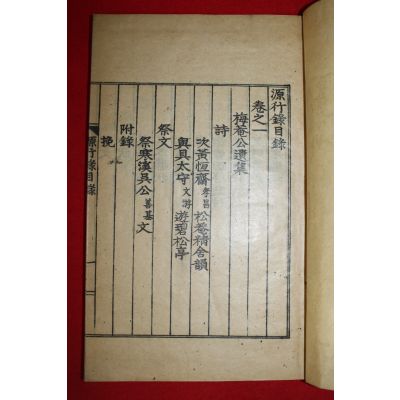 源行錄目錄
卷之一
梅菴公遺集
詩
次黃恒齋孝昌松菴精舍韻
與具太守文游遊碧松亭
祭文
祭寒溪吳公善基文
附錄
挽
源行錄目錄